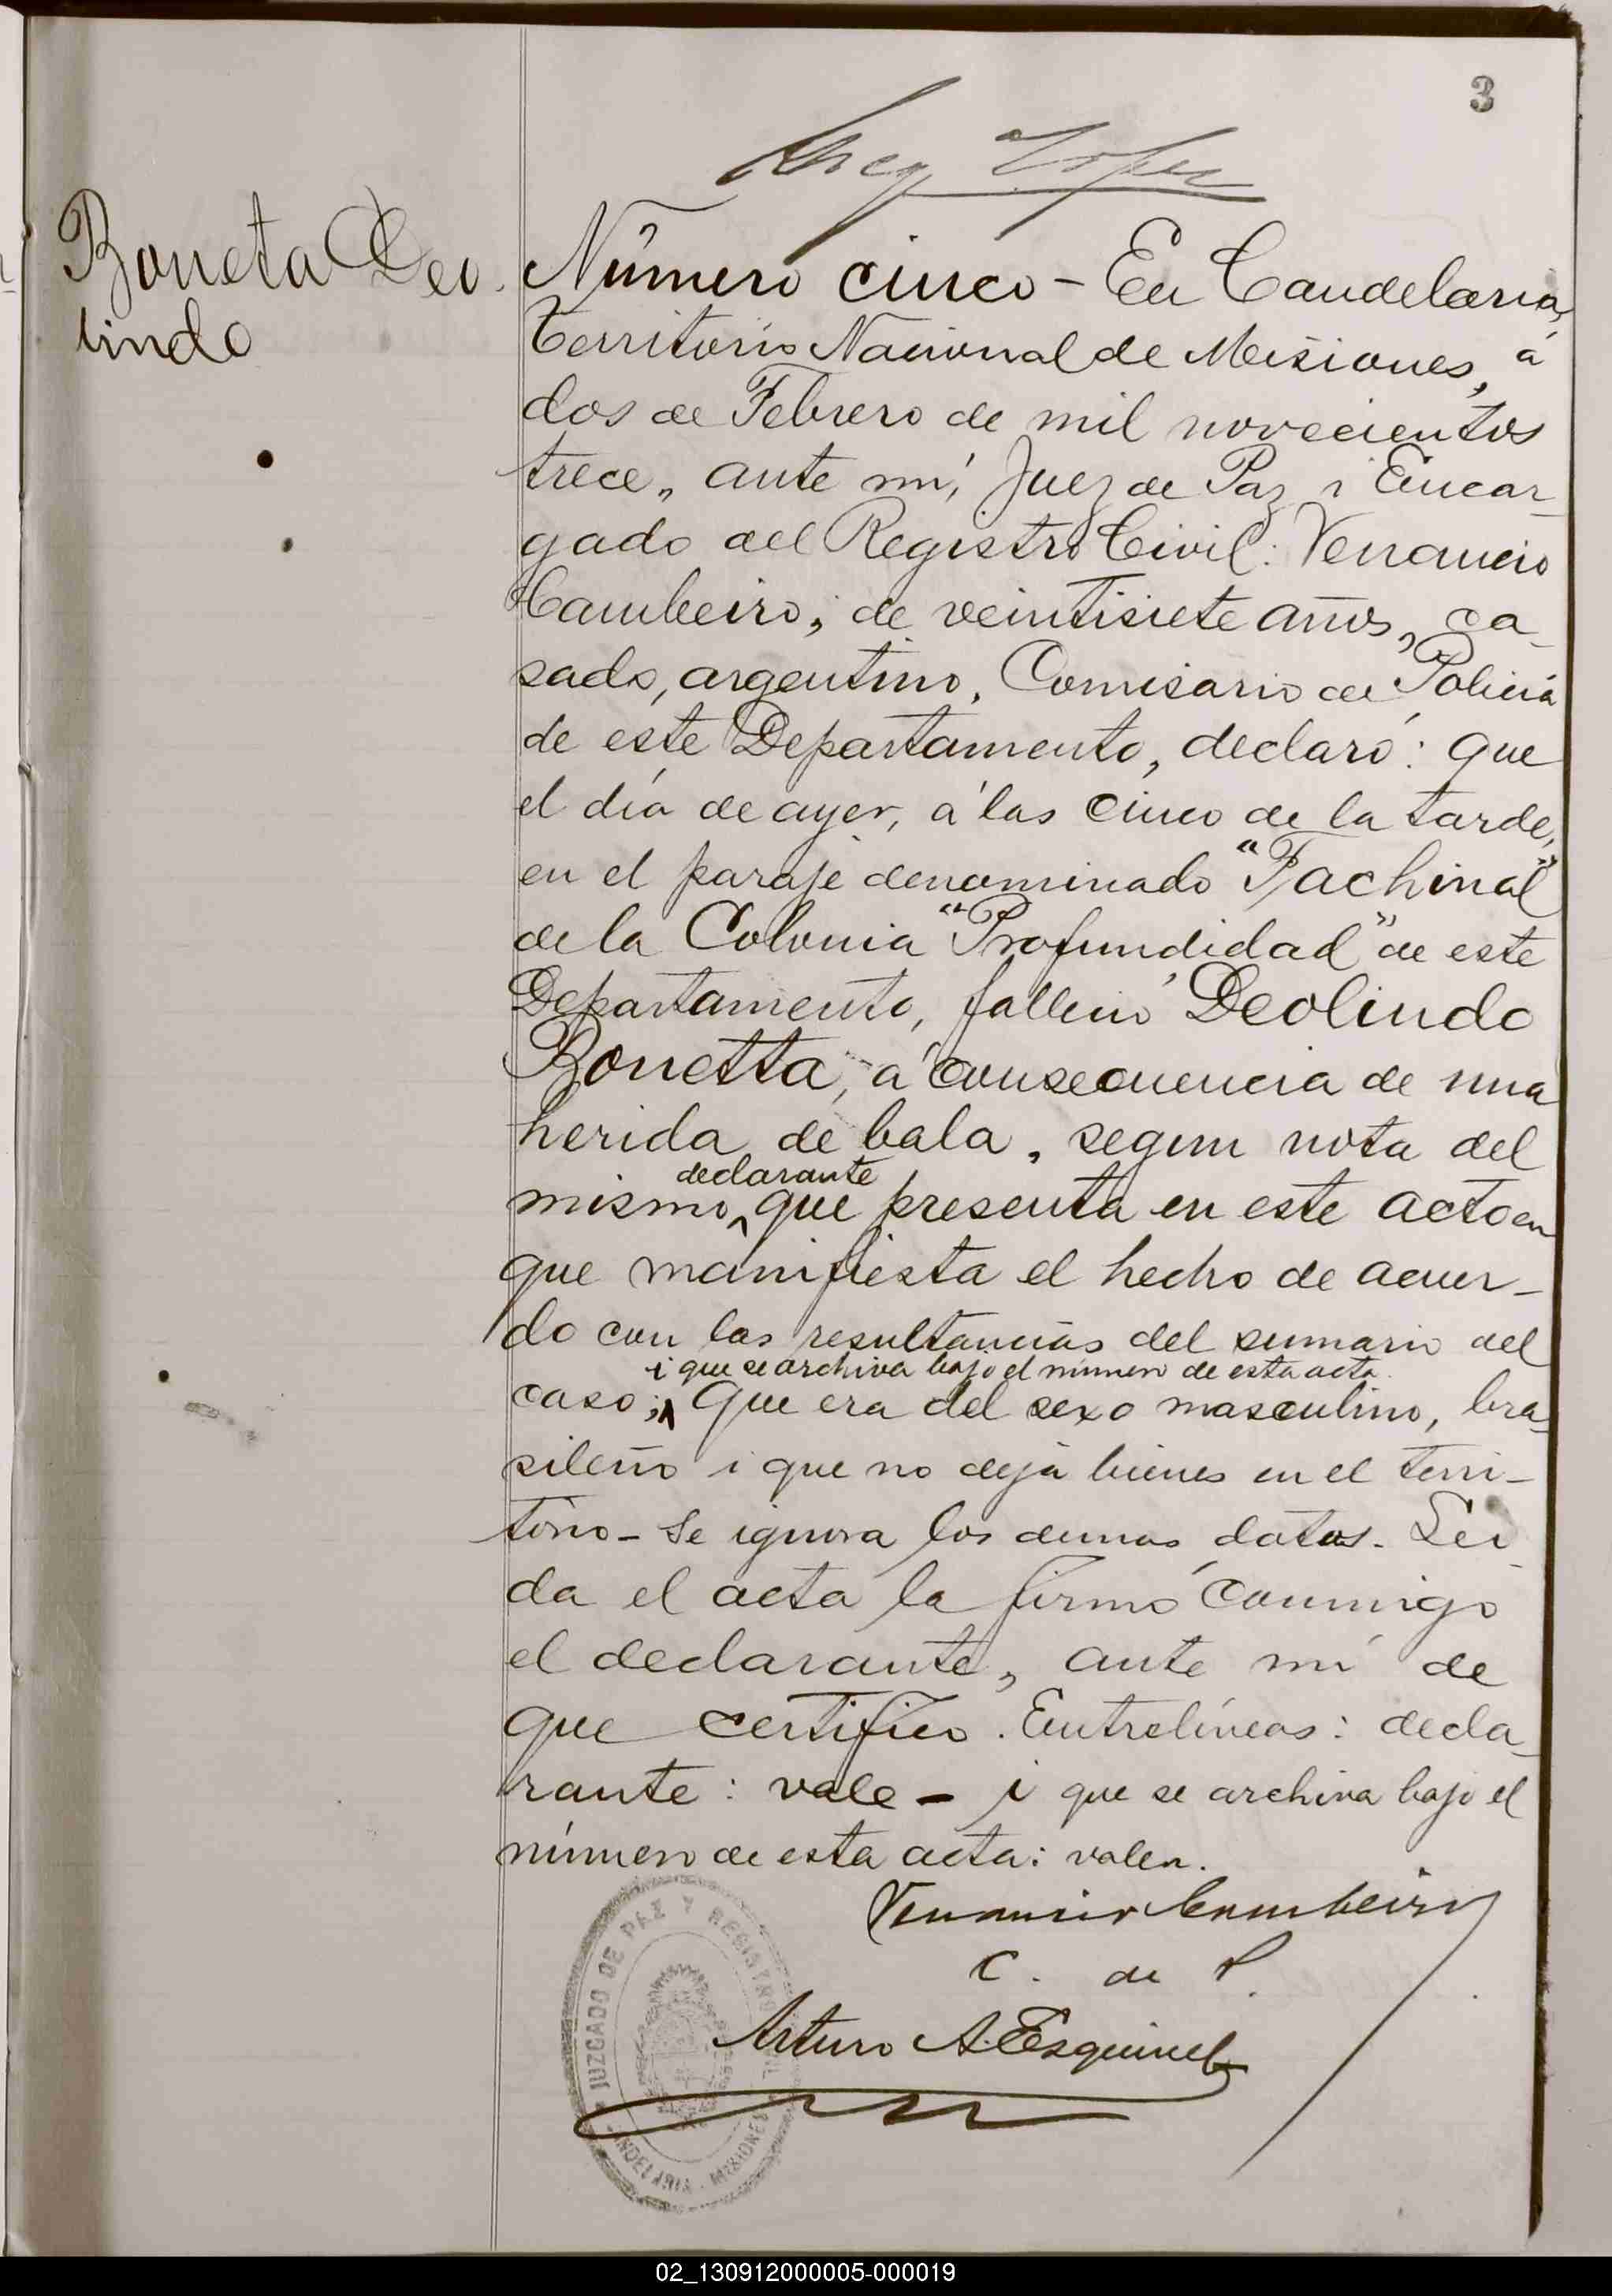 3
Boneta Deo-
lindo
Número cinco - En Candelaria,
Territorio Nacional de Misiones, á
dos de Febrero de mil novecientos
trece, ante mí, Juez de Paz i Encar-
gado del Registro Civil: Venancio
Cambeiro, de veintisiete años, ca-
sado, argentino, Comisario de Policía
de este Departamento, declaró: que
el día de ayer, á las cinco de la tarde,
en el paraje denominado "Fachinal"
de la Colonia "Profundidad" de este
Departamento, falleció Deolindo
Bonetta, á consecuencia de una
herida de bala, segun nota del
declarante
mismo, que presenta en este acto en
que manifiesta el hecho de acuer-
do con las resultancias del sumario del
i que se archiva bajo el número de esta acta.
caso; Que era del sexo masculino, bra-
sileño i que no deja bienes en el terri-
torio - Se ignora los demas datos. Lei-
da el acta la firmó conmigo
el declarante, ante mí de
que certifico. Entrelíneas: decla-
rante: vale - i que se archiva bajo el
número de esta acta: valen.
Venancio Cambeiro
C. de P.
Arturo A. Esquivel
JUZGADO DE PAZ Y REGISTRO
CANDELARIA - MISIONES
02_130912000005-000019